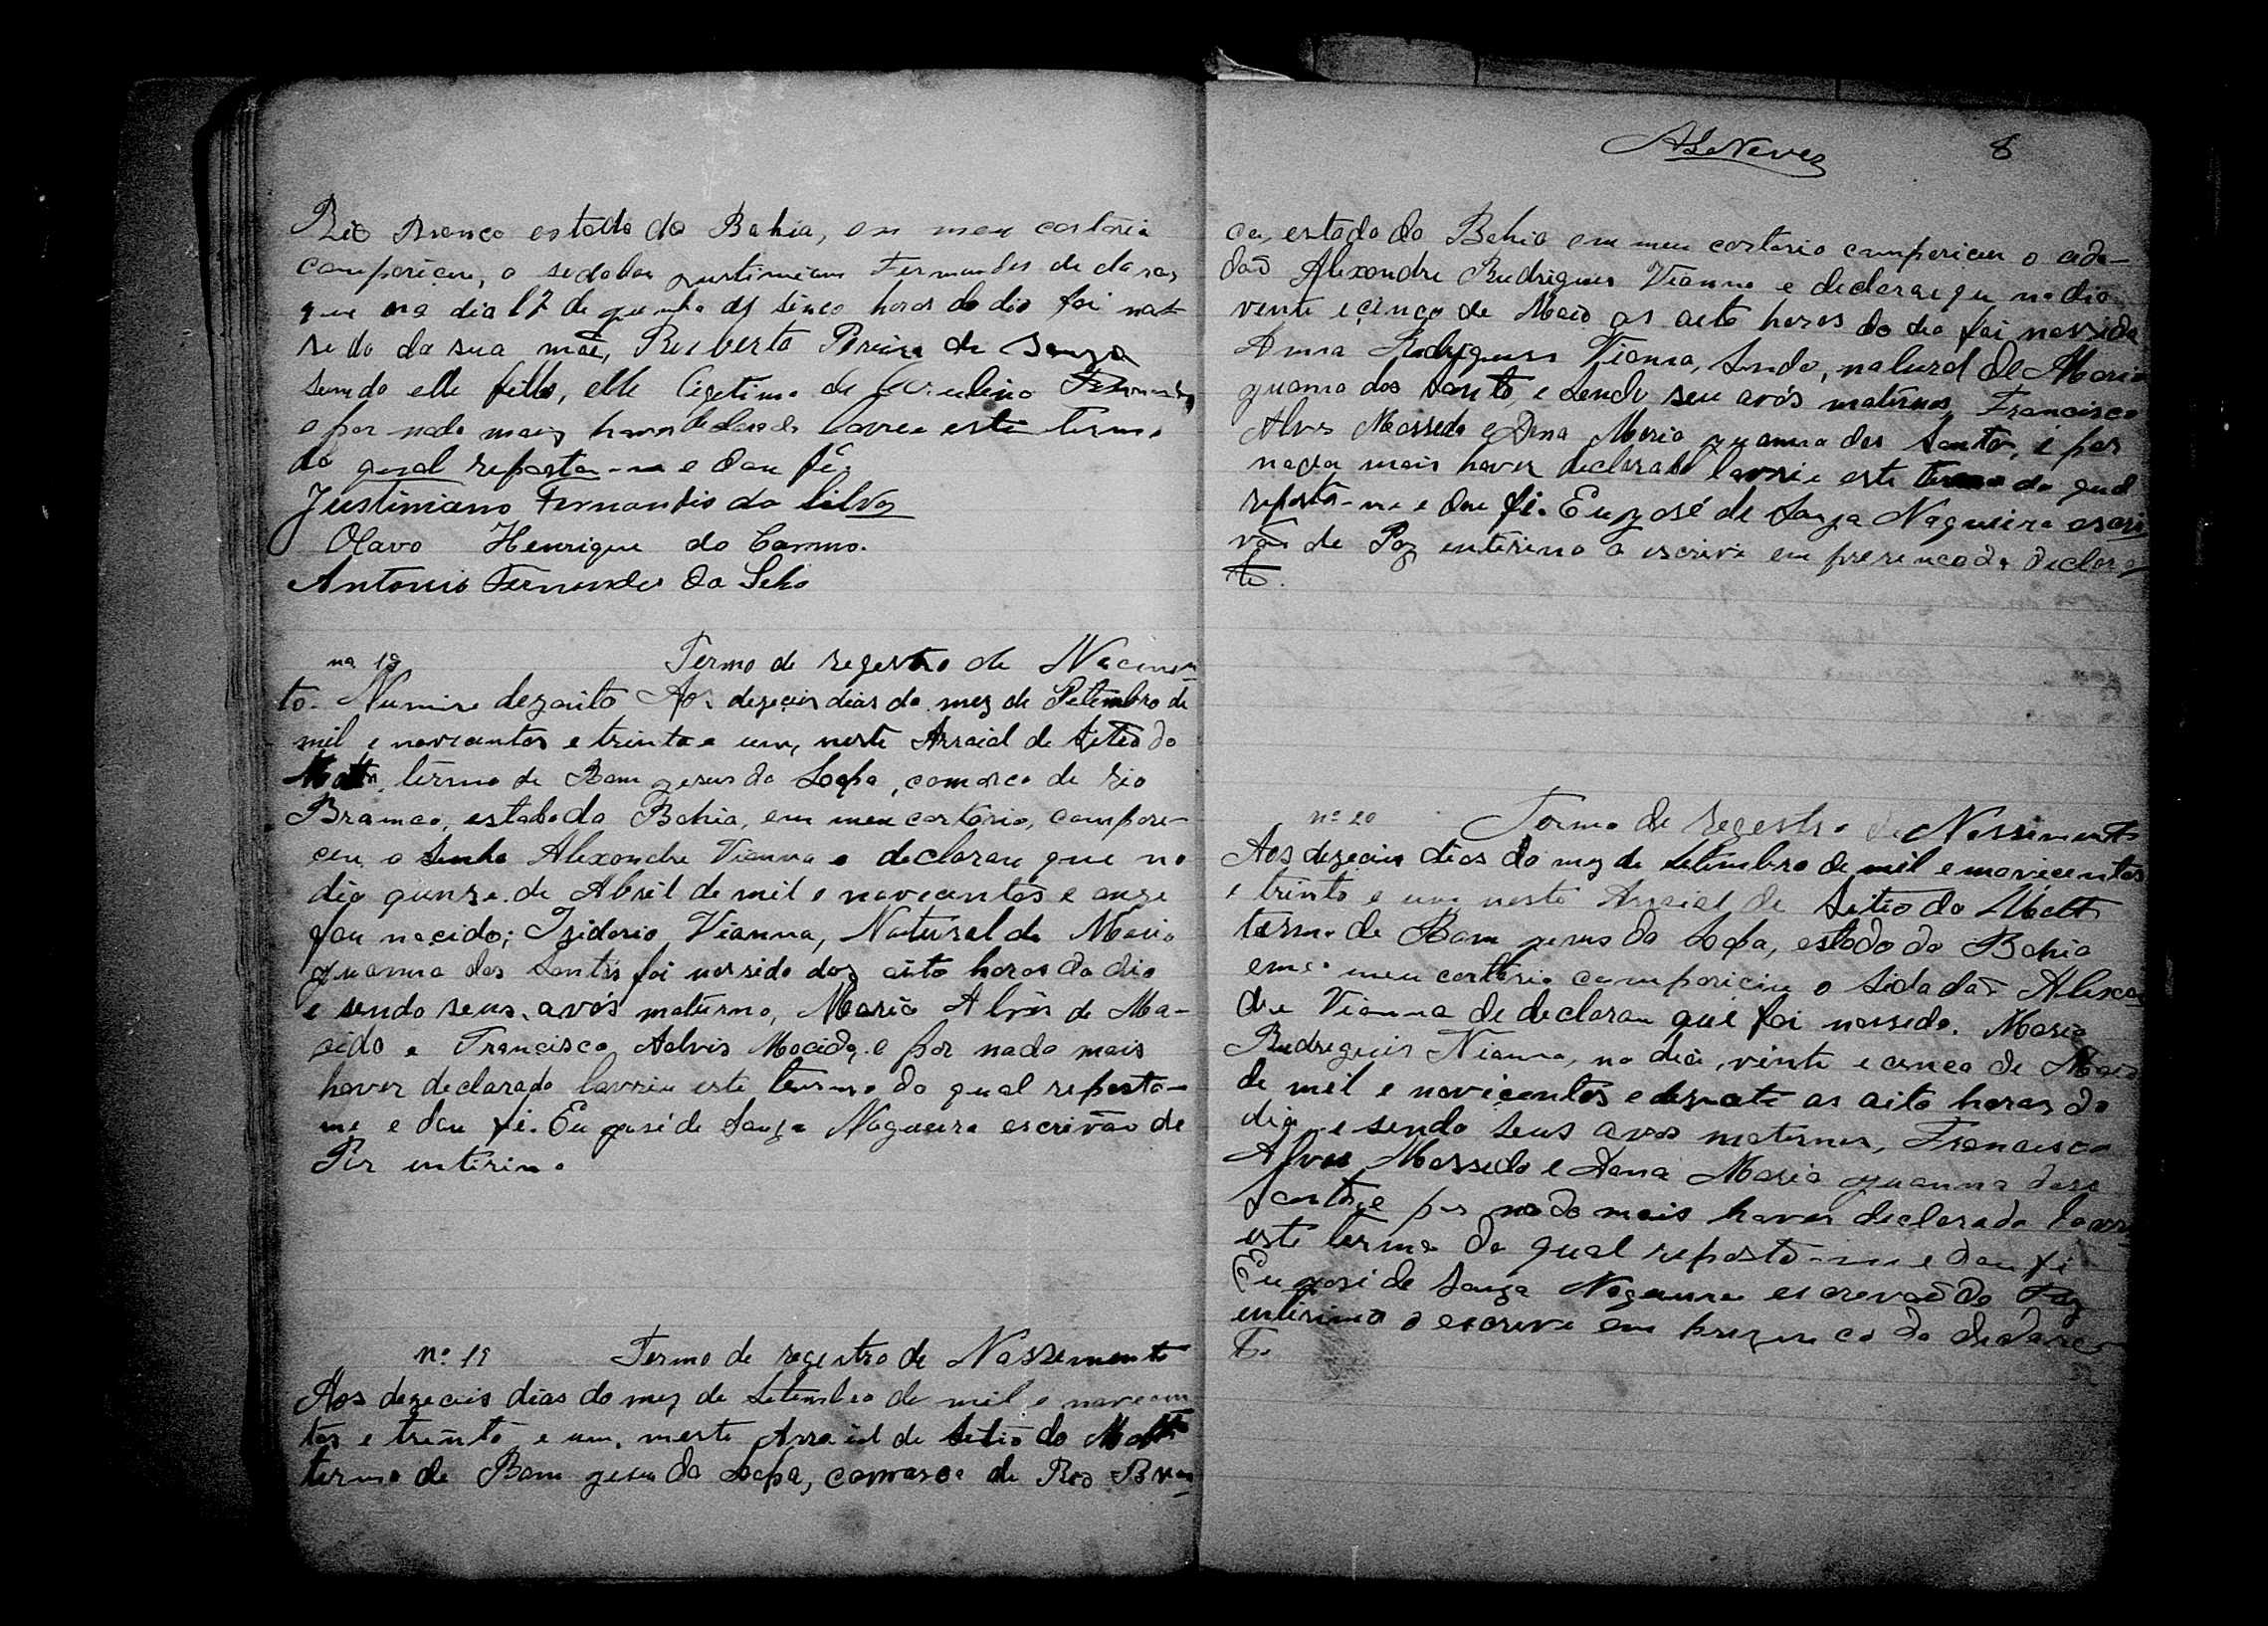 Rio Branco estado da Bahia, em meu cartorio
compariceu, o sidadão Justiniano Fernandes de claroz
que no dia 17 de junho as sinco horas do dia foi nas-
sido da sua mãe, Roberto Pereira de Souza
sendo elle filho, elle ligetimo de Fernandes
e por nada maiz haver declarado lavrei este termo
do qual reporto-me e dou fé,
Justiniano Fernandis da Silva
Olavo Henrique do Carmo.
Antonio Fernandes da Silva
nº 18 Termo de regestro de Nacimen
to. Numiro dezoito Aos dezeceis dias do mez de Setembro de
mil e novicentos e trinta e um, neste Arraial de Sitio do
Matto, termo de Bom jesus da Lapa, comarca de rio
Branco, estado da Bahia, em meu cartorio, compare-
ceu o Senho Alexandre Vianna e declarou que no
dia quinze de Abril de mil e novicentos e onze
fou nacido; Izidorio Vianna, Natural de Maria
juanna dos Santos foi nascido doz oito horas do dia
e sendo seus avós materno, Maria Alvis de Ma-
cido e Francisco Aalvis Macido, e por nada mais
haver declarado lavriu este termo do qual reporto-
me e dou fé. Eu josé de Souza Nogueira escrivão de
Paz interino
nº 19 Termo de regestro de Nassemento
Aos dezeceis dias do mez de Setembro de mil e novecen
tos e trinta e um, neste Arraial de Sitio do Matto
termo de Bom jesus da Lapa, comarca de Rio Bran
ALeNeves 8
ca, estado da Bahia em meu cartorio compariceu o cida-
dão Alexandre Rudrigues Vianna e declarae que no dia
vente e cinco de Maio as oito horas do dia foi nassida
Anna Rodrigues Vianna, sendo, natural de Maria
juanna dos Santo, e sendo seu avós maternos, Francisco
Alves Massedo e Dona Maria juanna dos Santos, e por
nada mais haver declarado lavrei este termo do qual
reporto-me e dou fé. Eu josé de Souza Nogueira escri
vão de Paz enterino o escrivi em presença do declara
te.
nº 20 Termo de regestro de Nassimento
Aos dezeceis dias do mez de Setembro de mil e novicentos
e trinta e um neste Arraial de Sitio do Matto
termo de Bom jesus da Lapa, estado da Bahia
em meu cartorio compariciu o Sidadão Alexan
dre Vianna de declarou que foi nassedo. Maria
Rudrigues Vianna, no dia, vinte e cinco de Maio
de mil e novicentos e dezacete as oito horas do
dia e sendo seus avos maternos, Francisco
Alves Massedo e Dona Maria juanna dos
Santos e por nada mais haver declarado lavrei
este termo do qual reposto-me e dou fé
Eu josé de Souza Nogueira escrevão de Paz
interino o escrevi em prezenca do declaran
T.